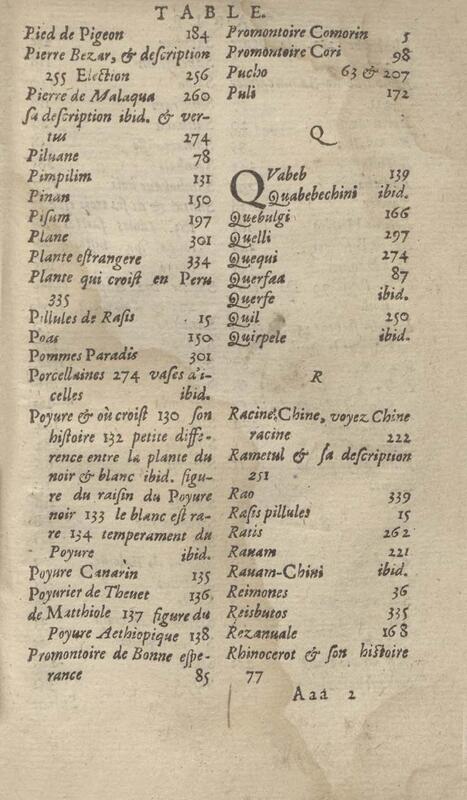 TABLE.
Pied de Pigeon 184
Pierre Bezar, & deſcription
255 Election 256
Pierre de Malaqua 260
ſa deſcription ibid. & ver-
tus 274
Piluane 78
Pimpilim 131
Pinan 150
Piſum 197
Plane 301
Plante eſtrangere 334
Plante qui croiſt en Peru
335
Pillules de Raſis 15
Poas 150
Pommes Paradis 301
Porcellaines 274 vaſes d'i-
celles ibid.
Poyure & où croiſt 130 ſon
hiſtoire 132 petite diffe-
rence entre la plante du
noir & blanc ibid. figu-
re du raiſin du Poyure
noir 133 le blanc eſt ra-
re 134 temperament du
Poyure ibid.
Poyure Canarin 135
Poyurier de Theuet 136
de Matthiole 137 figure du
Poyure Aethiopique 138
Promontoire de Bonne eſpe-
rance 85
Promontoire Comorin 5
Promontoire Cori 98
Pucho 63 & 207
Puli 172
Q
QVabeb 139
Quabebechini ibid.
Quebulgi 166
Quelli 297
Quequi 274
Querfaa 87
Querfe ibid.
Quil 250
Quirpele ibid.
R
Racine Chine, voyez Chine
racine 222
Rametul & ſa deſcription
251
Rao 339
Raſis pillules 15
Ratis 262
Rauam 221
Rauam-Chini ibid.
Reimones 36
Reisbutos 335
Rezanuale 168
Rhinocerot & ſon hiſtoire
77
Aaa 2